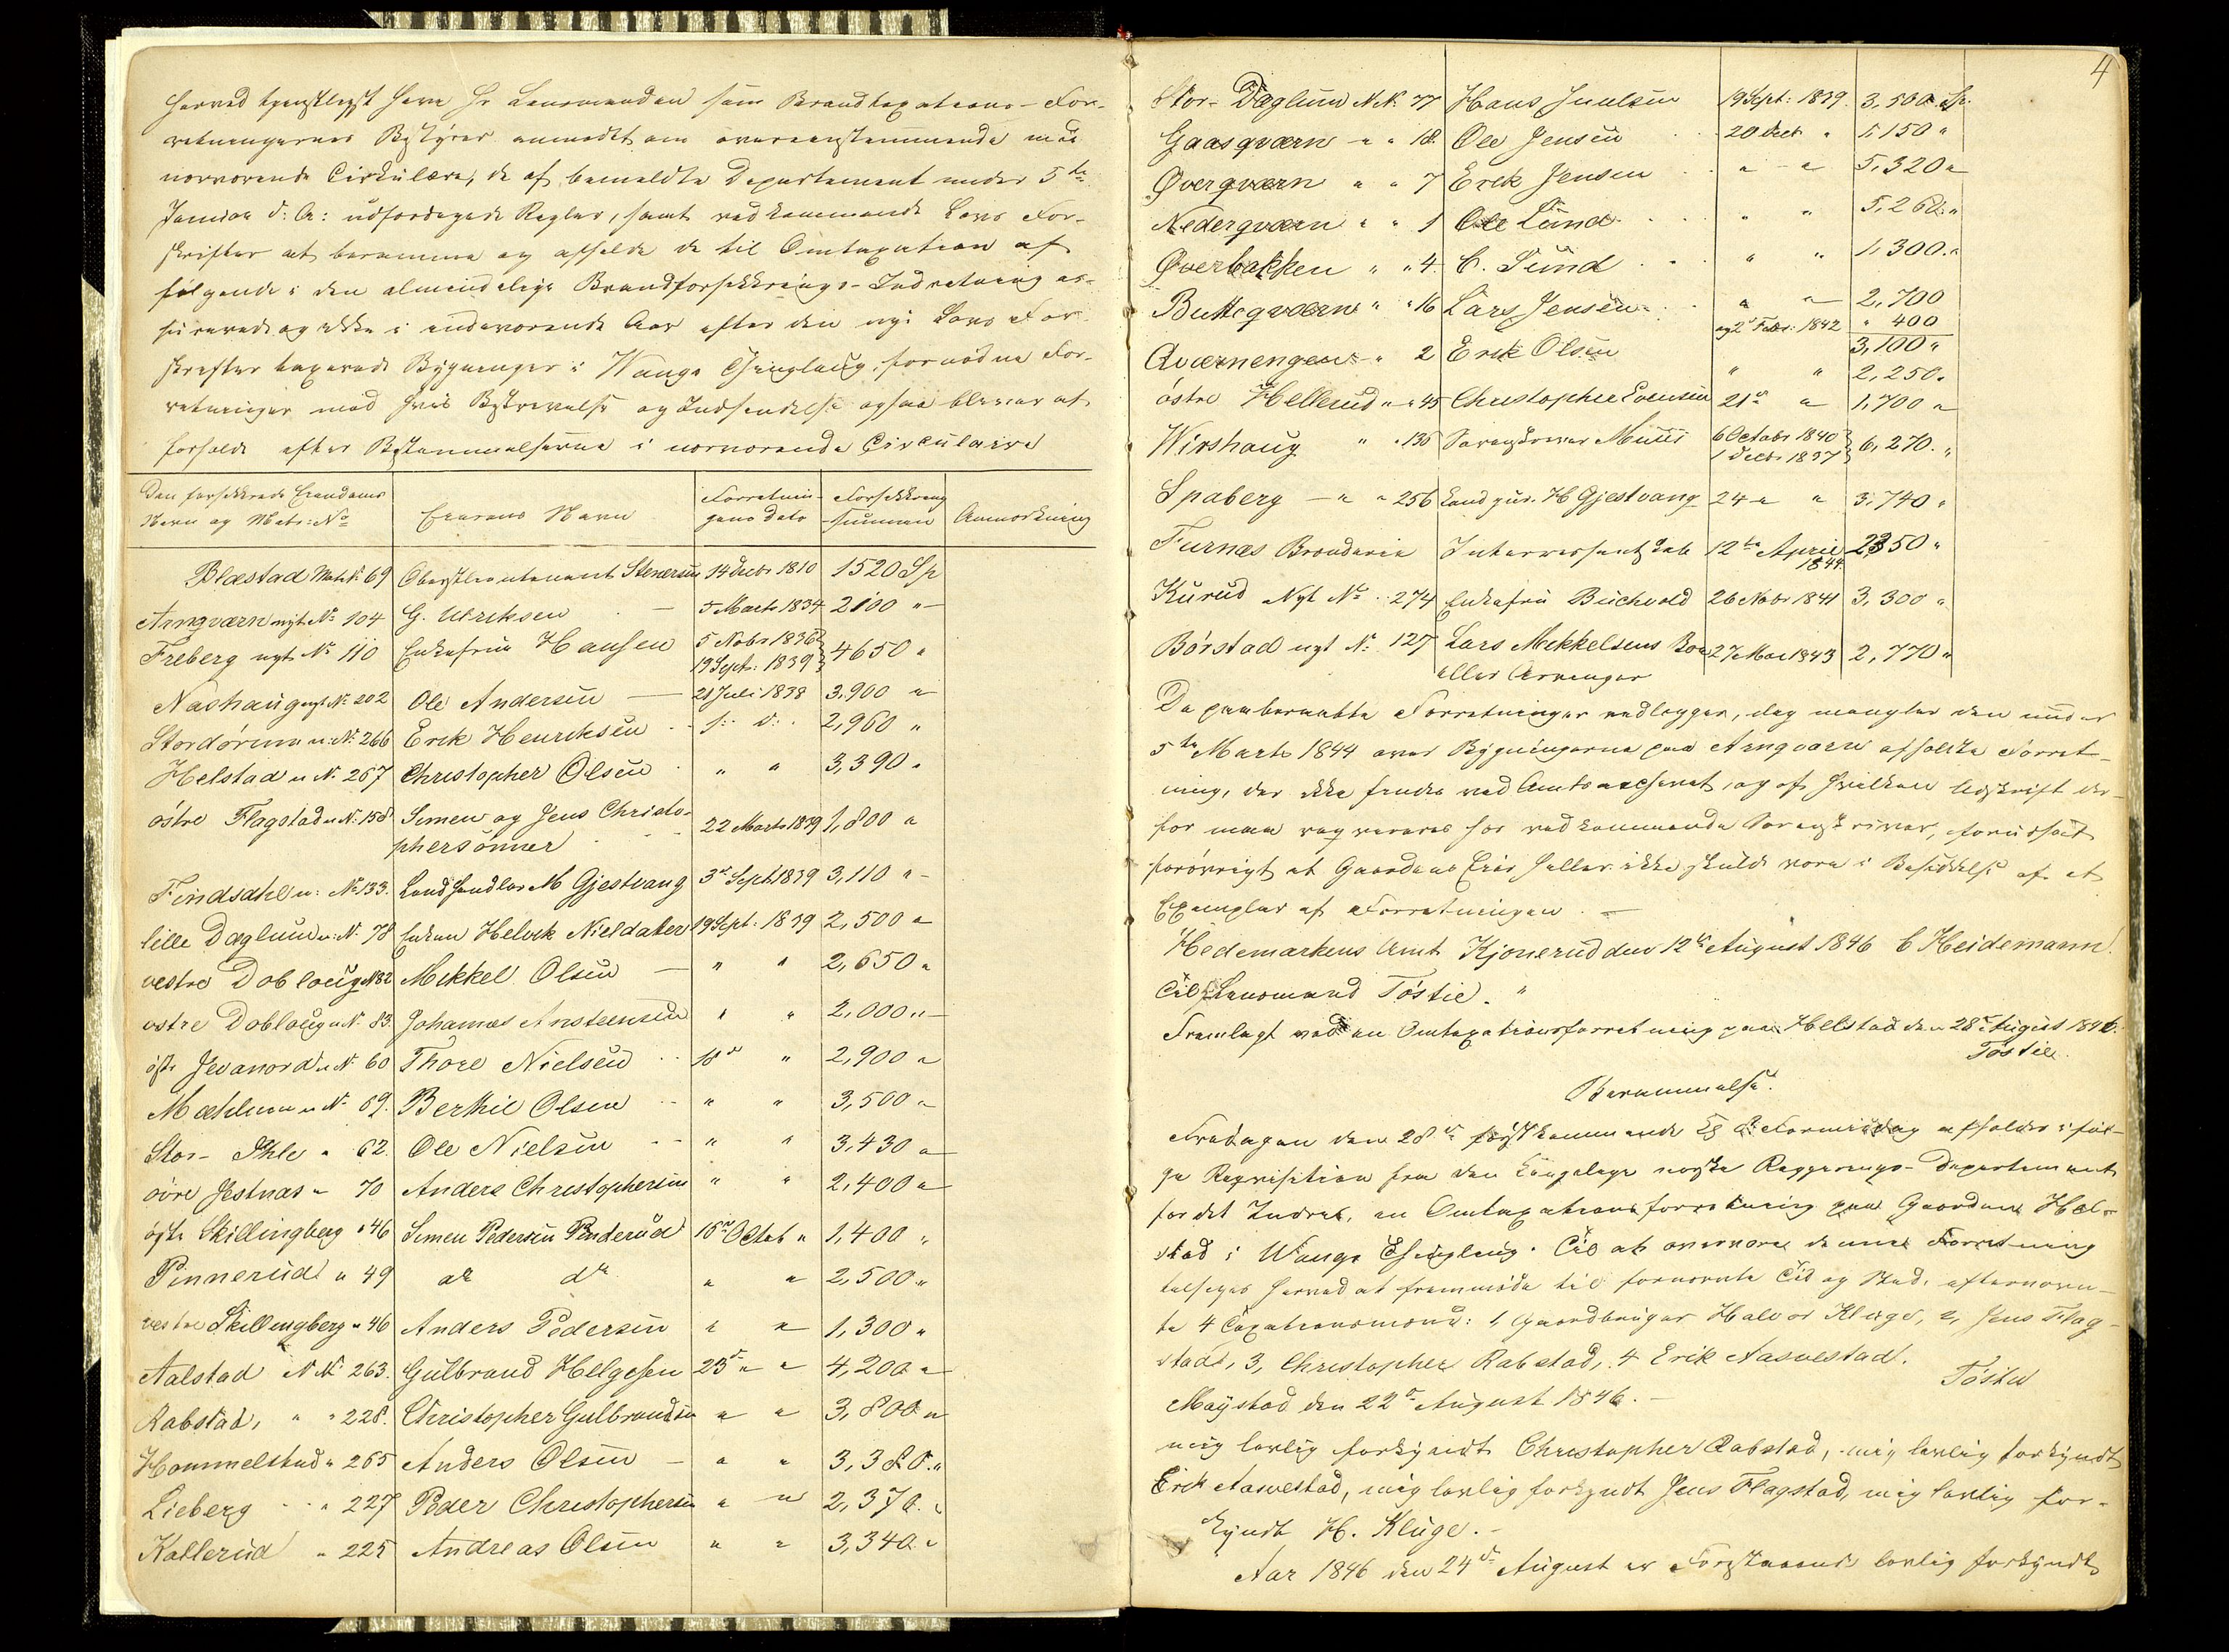 herved tjenstligst have Hr Lensmanden som Brandtaxations-For-
retningernes Bestyrer anmodet om overeensstemmende med
nærværende Cirkulære, de af bemeldte Departement under 5te
Januar d: A: udfærdigede Regler, samt vedkommende Lovs For-
skrifter at beramme og afholde de til Omtaxation af
følgende i den almindelige Brandforsikkrings-Indretning as-
surerede og ikke i indeværende Aar efter den nye Lovs For-
skrifter taxerede Bygninger i Wangs Thinglaug fornødne For-
retninger med hvis Bestyrelse og Indsendelse ogsaa bliver at
forholde efter Bestemmelserne i nærværende Circulaire
Den forsikkrede Eiendoms Eierens Navn Forretnin- Forsikkrings Anmærkning
Navn og Matr: No gens Dato -summen
Blæstad Matr No 69 Oberstlieutenant Stenersen 14 Decbr 1810 1520 Sp
Arnqværn nyt No 104 G. Ulriksen — 5 Marts 1834 2100 "
Freberg nyt No 110 Enkefrue Hansen 5 Nobr 1836 19 Sept: 1839 4650 "
Nashaug nyt No 202 Ole Andersen — 21 Juli 1838 3,900 "
Stordørum n: No 266 Erik Henriksen s: d: 2,960 "
Helstad n No 267 Christopher Olsen " " 3,390 "
østre Flagstad n No 158 Simen og Jens Christo- 22 Marts 1839 1,800 "
phersønner
Findsahl n: No 133. Landhandler M Gjestvang 3de Sept 1839 3,110 "
lille Dæglum n: No 78 Enken Helvik Nieldaker 19 Sept: 1839 2,500 "
vestre Dobloug N 82 Mikkel Olsen — " " 2,650 "
østre Dobloug n No 83. Johannes Ansteensen " " 2,000 "
østr Jevanord n No 60 Thore Nielsen 18de " 2,900 "
Mæhlum n No 69. Berthil Olsen " " 3,500 "
Stor- Ihle " 62. Ole Nielsen " " 3,430 "
øvre Jestnæs " 70 Anders Christophersen " " 2,400 "
østr Skillingberg " 46 Simen Pedersen Penderud 15de Octob " 1,400 "
Pinnerud " 49 do do " " 2,500 "
vestre Skillingberg " 46 Anders Pedersen " " 1,300 "
Aalstad N No 263. Gulbrand Helgesen 23de " " 4,200 "
Rabstad, " " 228. Christopher Gulbrandsen " " 3,800 "
Hommelstad " 265 Anders Olsen — " " 3,380. "
Lieberg " 227 Peder Christophersen " " 2,370. "
Kallerud " 225 Andreas Olsen " " 3,340. "
4
Stor- Dæglum N No 77 Hans Juulsen 19 Sept: 1839. 3,500 Sp.
Gaasqværn " " 18. Ole Jensen 20 Octb " 1,150 "
Øverqværn " " 7 Erik Jensen " " 5,320 "
Nederqværn " " 1 Ole Lund " " 5,260. "
Øverbakken " " 4. C. Lund " " 1,300. "
Butteqværn " " 16 Lars Jensen " " 2,700
og 2de Febr: 1842 " 400
3,100 "
Qværnengen " 2 Erik Olsen " " 2,250.
østre Hellerud " " 45 Christopher Evensen 21de " 1,700 "
Wirshaug " " 135 Sorenskriver Muus 6 Octobr 1840 1 Decbr 1837 6,270. "
Spaberg " " 256 Landhdr. H Gjestvang 24 " " 3,740 "
Furnæs Brænderie Interessentskab 12te April 1844. 2350 "
Kurud Nyt No 274 Enkefru Buchvold 26 Nobr 1841 3,300 "
Børstad nyt No 127 Lars Mikkelsens Boe 27 Mai 1843 2,770 "
eller Arvinger
De paaberaabte Forretninger vedlægges, dog mangler den under
5te Marts 1844 over Bygningerne paa Arnqværn afholdte Forret-
ning, der ikke findes ved Amtsarchivet, og af hvilken Udskrift der-
for maa reqvireres hos vedkommende Sorenskriver, forudsat
forøvrigt at Gaardens Eier heller ikke skulde være i Besiddelse af et
Exemplar af Forretningen. —
Hedemarkens Amt Kjonerud den 12te August 1846 C Heidemann.
Til Lensmand Tøstie. "
Fremlagt ved en Omtaxationsforretning paa Helstad den 28de August 1846.
Tøstie.
Berammelse.
Fredagen den 28de førstkommende Kl 8 Formiddag afholdes i føl-
ge Reqvisition fra den kongelige norske Regjerings-Departement
for det Indre, en Omtaxationsforretning paa Gaarden Hel-
stad i Wangs Thinglaug. Til at overvære denne Forretning
tilsiges herved at fremmøde til fornævnte Tid og Sted, efternævn-
te 4 Taxationsmænd: 1, Gaardbruger Halvor Kluge, 2, Jens Flag-
stad, 3, Christopher Rabstad, 4 Erik Aasvestad.
Tøstie
Møystad den 22de August 1846. —
mig lovlig forkyndt Christopher Rabstad, mig lovlig forkyndt
Erik Aasvestad, mig lovlig forkyndt Jens Flagstad, mig lovlig for-
kyndt H. Kluge. —
Aar 1846 den 24de August er Forestaaende lovlig forkyndt